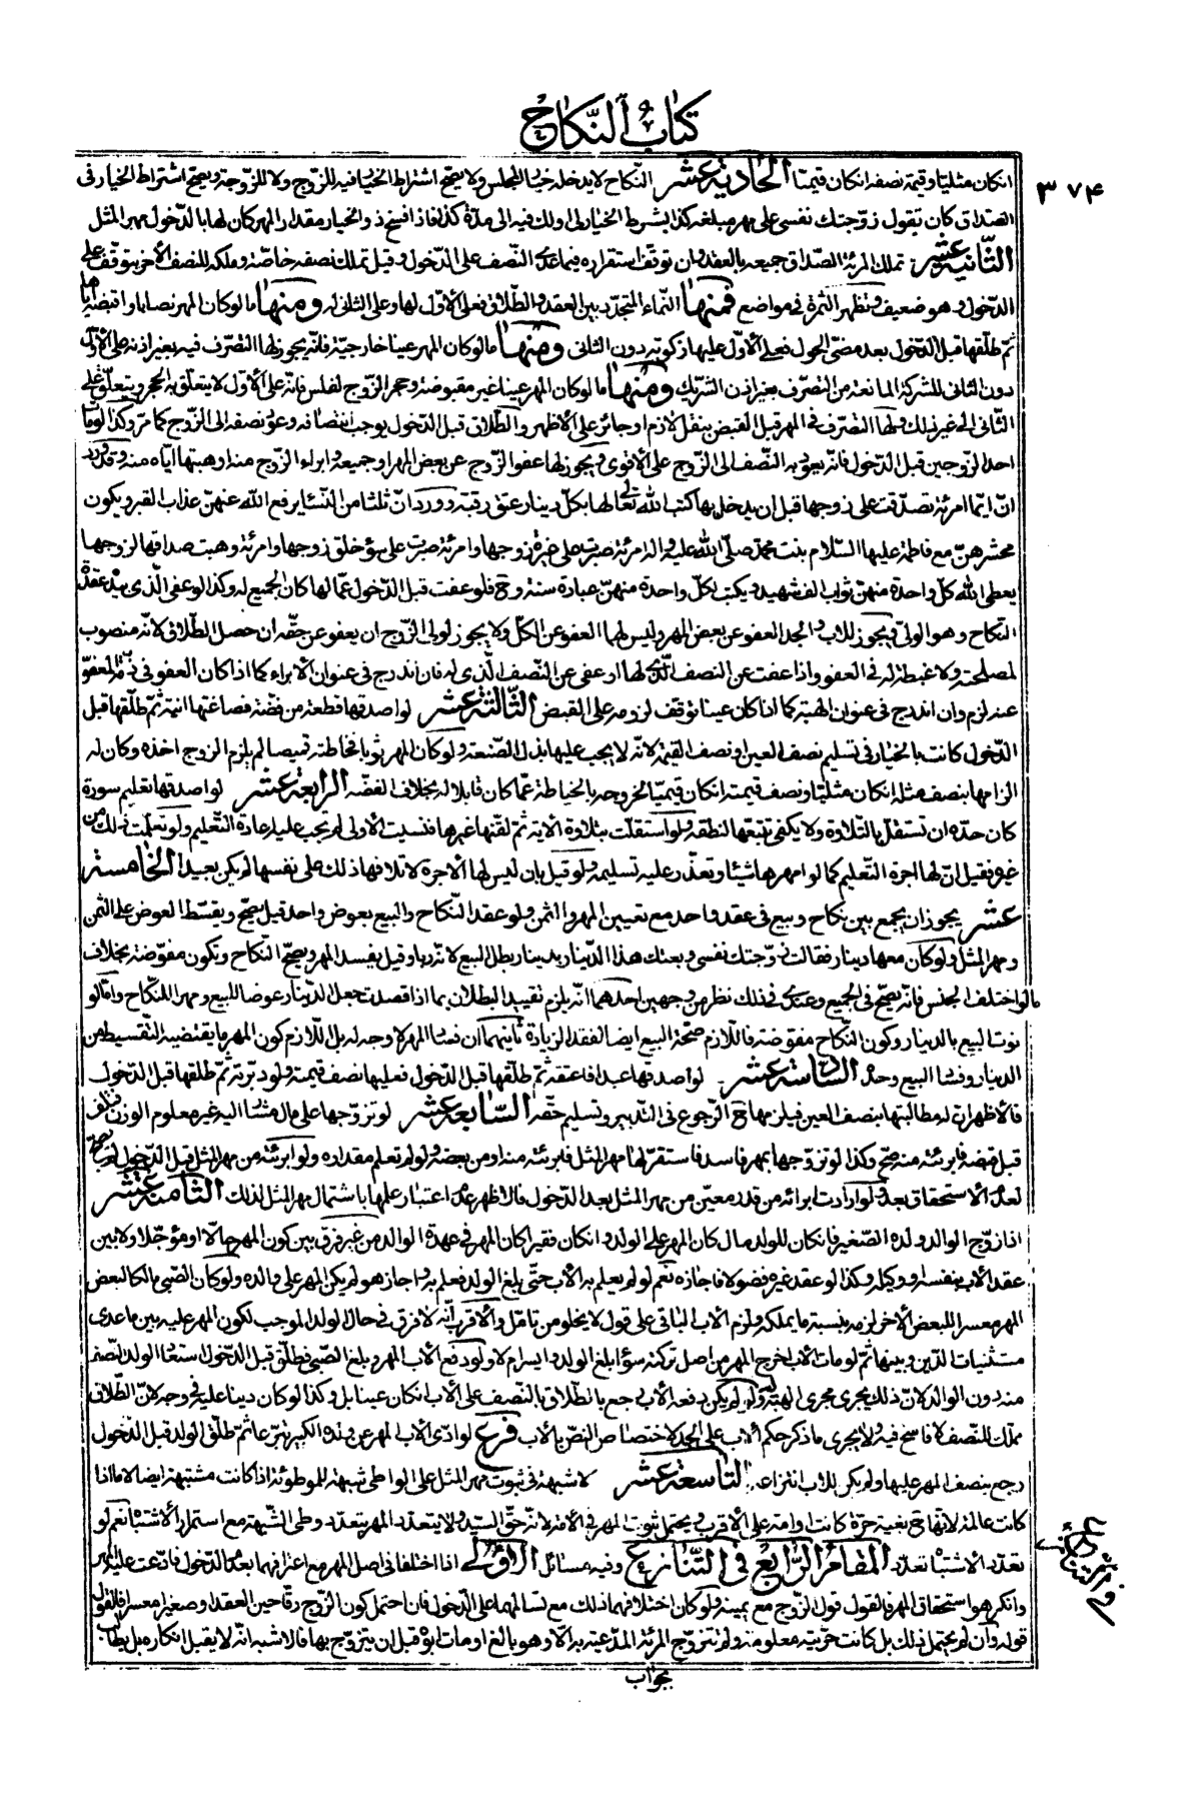 كتاب النكاح
٣٧۴
انكان مثليا وقيمة نصفه انكان قيميا الحادية عشر النكاح لا يدخله خيار المجلس ولا يصح اشتراط الخيار فيه للزوج ولا للزوجة ويصح اشتراط الخيار في
الصداق كان يقول زوجتك نفسي على مهر مبلغه كذا بشرط الخيار لي او لك فيه الى مدة كذا فاذا فسخ ذو الخيار مقدار المهر كان لها بالدخول مهر المثل
الثانية عشر تملك المرئة الصداق جميعه بالعقد وان توقف استقراره فيما عدى النصف على الدخول وقيل تملك نصفه خاصة وملكه للنصف الأخر يتوقف على
الدخول وهو ضعيف وتظهر الثمرة في مواضع فمنها النماء المتجدد بين العقد والطلاق فعلى الأول لها وعلى الثاني له ومنها ما لو كان المهر نصابا واقبضه اياها
ثم طلقها قبل الدخول بعد مضى الحول فعلى الأول عليها زكوته دون الثاني ومنها ما لو كان المهر عينا خارجية فانه يجوز لها التصرف فيه بغير اذنه على الأول
دون الثاني للشركة المانعة من التصرف بغير اذن الشريك ومنها ما لو كان المهر عينا غير مقبوضة وحجر الزوج لفلس فانه على الأول لا يتعلق به الحجر ويتعلق على
الثاني الى غير ذلك ولها التصرف في المهر قبل القبض بنقل لازم او جائز على الأظهر والطلاق قبل الدخول يوجب انتصافه وعود نصفه الى الزوج كما مر وكذا لو مات
احد الزوجين قبل الدخول فانه يعود به النصف الى الزوج على الأقوى ويجوز لها عفو الزوج عن بعض المهر او جميعه وابراء الزوج منه او هبتها اياه منه وقد ورد
ان ايما امرئة تصدقت على زوجها قبل ان يدخل بها كتب الله تعالى لها بكل دينار عتق رقبة وورد ان ثلثا من النساء يرفع الله عنهن عذاب القبر ويكون
محشرهن مع فاطمة عليها السلام بنت محمد صلى الله عليه واله امرئة صبرت على غيرة زوجها وامرئة صبرت على سوء خلق زوجها وامرئة وهبت صداقها لزوجها
يعطى الله كل واحدة منهن ثواب الف شهيد ويكتب لكل واحدة منهن عبادة سنة وح فلو عفت قبل الدخول عما لها كان الجميع له وكذا لو عفى الذي بيده عقدة
النكاح وهو الولي ويجوز للاب والجد العفو عن بعض المهر وليس لهما العفو عن الكل ولا يجوز لولي الزوج ان يعفو عن حقه ان حصل الطلاق لانه منصوب
لمصلحته ولا غبطة له في العفو واذا عفت عن النصف الذي لها او عفى عن النصف الذي له فان اندرج في عنوان الأبراء كما اذا كان العفو في ذمة المعفو
عنه لزم وان اندرج في عنوان الهبة كما اذا كان عينا توقف لزومه على القبض الثالثة عشر لو اصدقها قطعة من فضة فصاغتها انية ثم طلقها قبل
الدخول كانت بالخيار في تسليم نصف العين او نصف القيمة لانه لا يجب عليها بذل الصنعة ولو كان المهر ثوبا فخاطته قميصا لم يلزم الزوج اخذه وكان له
الزامها بنصف مثله انكان مثليا ونصف قيمته انكان قيميا لخروجه بالخياطة عما كان قابلا له بخلاف الفضه الرابعة عشر لو اصدقها تعليم سورة
كان حده ان تستقل بالتلاوة ولا يكفي تتبعها النطقه ولو استقلت بتلاوة الأية ثم لقنها غيرها فنسيت الأولى لم يجب عليه اعادة التعليم ولو تعلمت ذلك من
غيره فقيل ان لها اجرة التعليم كما لو امهرها شيئا وتعذر عليه تسليمه ولو قيل بان ليس لها ألاجرة لاتلافها ذلك على نفسها لم يكن بعيدا الخامسة
عشر يجوز ان يجمع بين نكاح وبيع في عقد واحد مع تعيين المهر والثمن ولو عقد النكاح والبيع بعوض واحد قيل يصح ويقسط العوض على الثمن
ومهر المثل ولو كان معها دينار فقالت زوجتك نفسي وبعتك هذا الدينار بدينار بطل البيع لانه ربا وقيل يفسد المهر ويصح النكاح وتكون مفوضة بخلاف
ما لو اختلف الجنس فانه يصح في الجميع وعندي في ذلك نظر من وجهين احدهما انه يلزم تقييد البطلان بما اذا قصدت جعل الدينار عوضا للبيع ومهرا للنكاح واما لو
نوت البيع بالدينار وكون النكاح مفوضة فاللازم صحة البيع ايضا لفقد الزيادة ثانيهما ان فساد المهر لا وجه له بل اللازم كون المهر ما يقتضيه التقسيط من
الدينار وفساد البيع وحده السادسة عشر لو اصدقها عبدا فاعتقه ثم طلقها قبل الدخول فعليها نصف قيمته ولو دبرته ثم طلقها قبل الدخول
فالاظهر ان له مطالبتها بنصف العين فيلزمها ح الرجوع في التدبير وتسليم حقه السابعة عشر لو تزوجها على مال مشار اليه غير معلوم الوزن فتلف
قبل قبضه فابرئته منه صح وكذا لو تزوجها بمهر فاسد فاستقر لها مهر المثل فابرئته منه او من بعضه ولو لم تعلم مقداره ولو ابرئته من مهر المثل قبل الدخول لم يصح
لعدم الاستحقاق بعد ولو ارادت ابرائه من قدر معين من مهر المثل بعد الدخول فالاظهر عدم اعتبار علمها باشتمال مهر المثل لذلك الثامنة عشر
اذا زوج الوالد ولده الصغير فانكان للولد مال كان المهر على الولد وانكان فقيرا كان المهر في عهدة الوالد من غير فرق بين كون المهر حالا او مؤجلا ولا بين
عقد الأب بنفسه او وكيله وكذا لو عقد غيره فضولا فاجازه نعم لو لم يعلم به الأب حتى بلغ الولد فعلم به واجاز هو لم يكن المهر على والده ولو كان الصبي مالكا لبعض
المهر معسرا للبعض الأخر لزمه بنسبة ما يملكه ولزم الأب الباقي على قول لا يخلو من تامل والأقرب انه لا فرق في حال الولد الموجب لكون المهر عليه بين ماعدى
مستثنيات الدين وبينها ثم لو مات الأب اخرج المهر من اصل تركته سواء بلغ الولد وايسر ام لا ولو دفع الأب المهر وبلغ الصبي فطلق قبل الدخول استعاد الولد النصف
منه دون الوالد لان ذلك يجرى مجرى الهبة ولو لم يكن دفعه الأب رجع بالطلاق بالنصف على الأب انكان عينا بل وكذا لو كان دينا عليه في وجه لأن الطلاق
مملك للنصف لا فاسخ فيه ولا يجرى ما ذكر حكم الأب على الجد لاختصاص النص بالأب فرع لو ادى الأب المهر عن ولده الكبير تبرعا ثم طلق الولد قبل الدخول
رجع بنصف المهر عليها ولم يكن للاب انتزاعه التاسعة عشر لا شبهة في ثبوت مهر المثل على الواطى شبهة للموطوئة اذا كانت مشتبهة ايضا لا ما اذا
كانت عالمة لانها ح بغية حرة كانت او امة على الأقرب ويحتمل ثبوت المهر في الأمة لانه حق السيد ولا يتعدد المهر بتعدد وطى الشبهة مع استمرار الأشتباه نعم لو
تعدد الأشتباه تعدد المقام الرابع في التنازع وفيه مسائل الاولى اذا اختلفا في اصل المهر مع اعترافهما بعدم الدخول فادعت عليه المهر
وانكر هو استحقاق المهر فالقول قول الزوج مع يمينه ولو كان اختلافهما ذلك مع تسالمهما على الدخول فان احتمل كون الزوج رقا حين العقد او صغيرا معسرا فالقول
قوله وان لم يحتمل ذلك بل كانت حريته معلومة ولم تتزوج المرئة المدعية به الا وهو بالغ او مات ابوه قبل ان يتزوج بها فالاشبه انه لا يقبل انكاره بل يطالب
بجواب